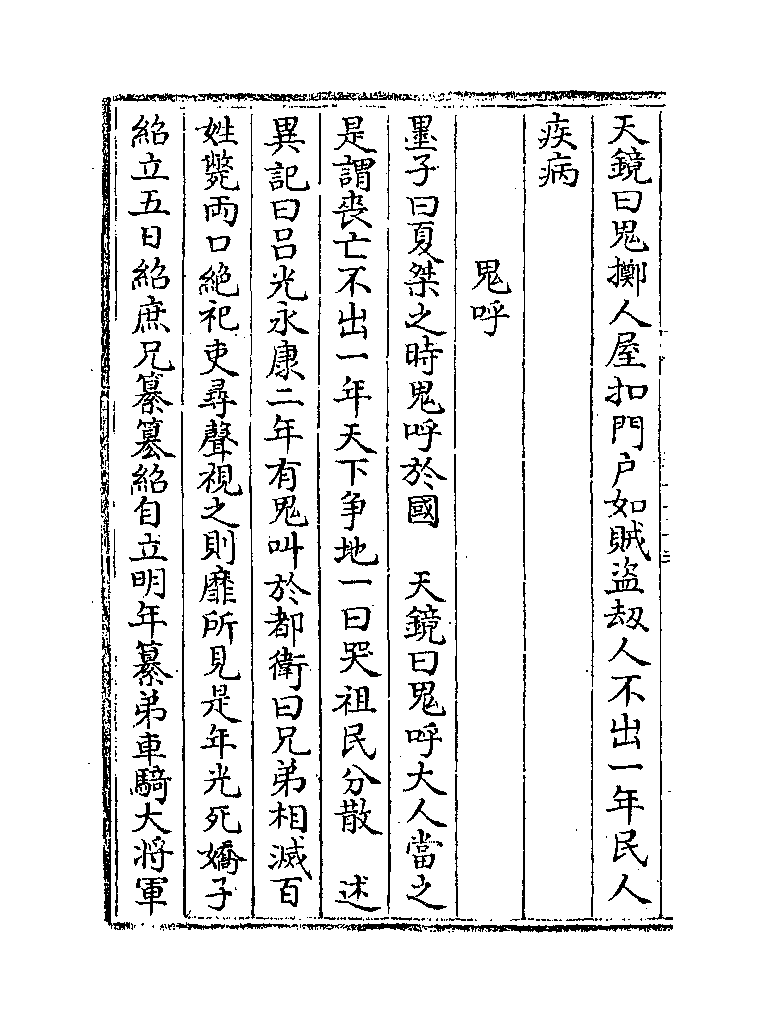 天鏡曰鬼擲人屋扣門户如賊盜刼人不出一年民人
疾病
鬼呼
墨子曰夏桀之時鬼呼於國　天鏡曰鬼呼大人當之
是謂喪亡不出一年天下争地一曰哭祖民分散　述
異記曰吕光永康二年有鬼叫於都衛曰兄弟相滅百
姓斃兩口絶祀吏尋聲視之則靡所見是年光死嬌子
紹立五日紹庶兄纂簒紹自立明年纂弟車騎大將軍